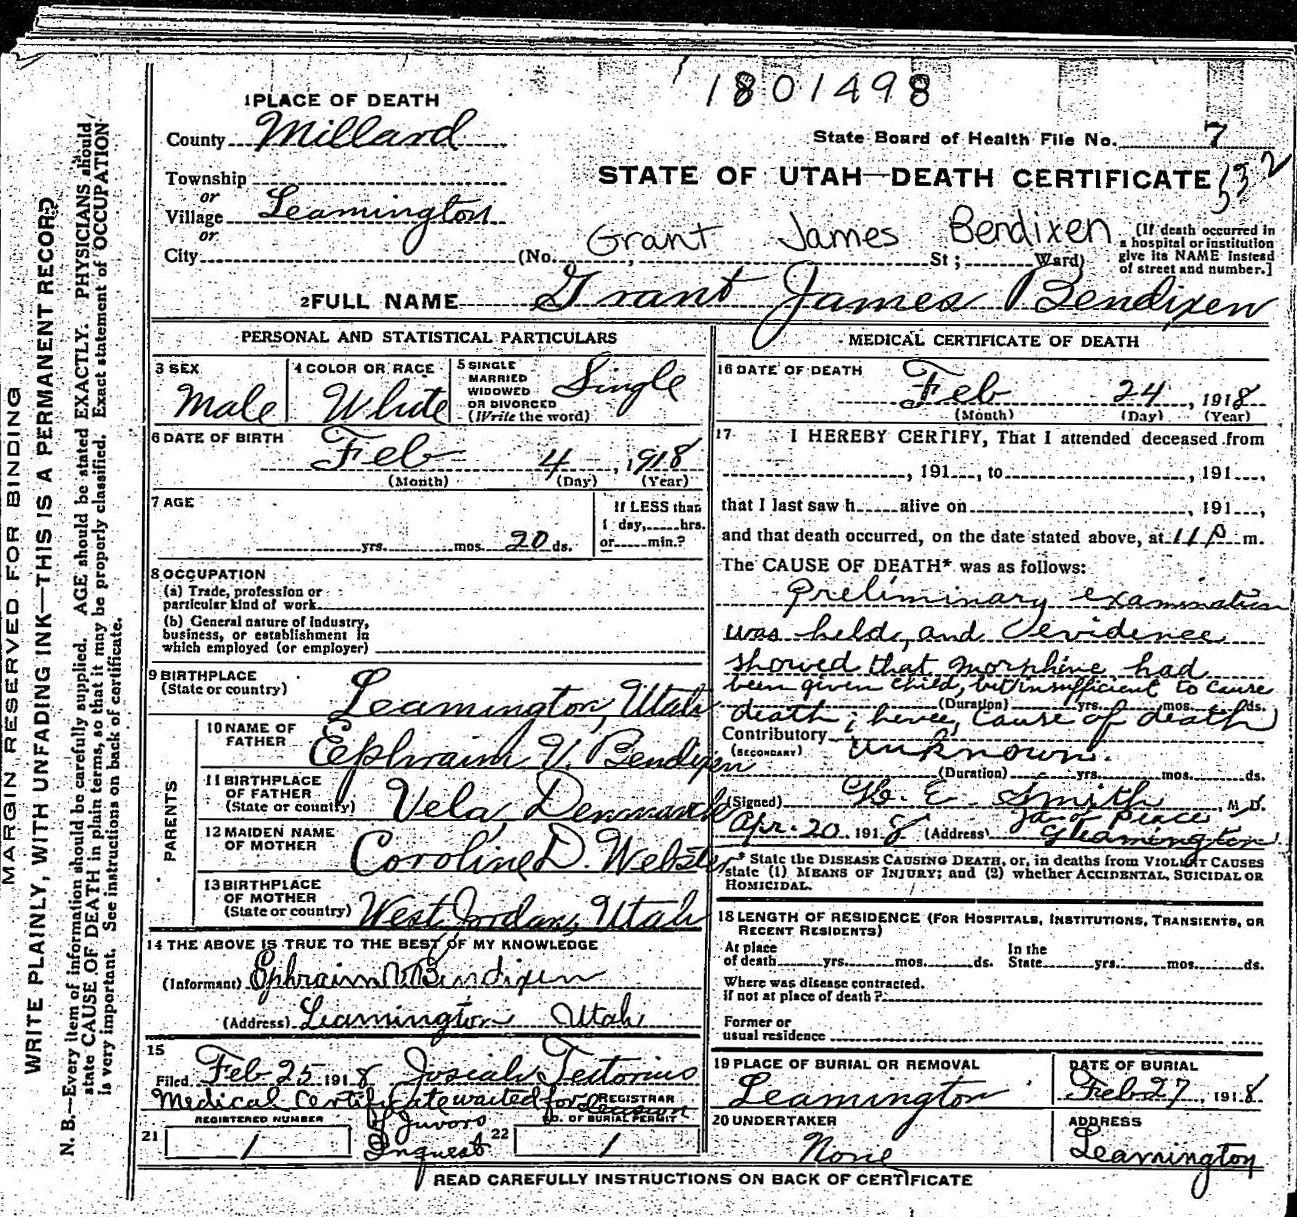 1801498
1 PLACE OF DEATH
County Millard
State Board of Health File No. 7
532
Township
or
STATE OF UTAH—DEATH CERTIFICATE
Village Leamington
or
City
(No. Grant James Bendixen St; Ward)
(If death occurred in a hospital or institution give its NAME instead of street and number.]
2 FULL NAME Grant James Bendixen
PERSONAL AND STATISTICAL PARTICULARS
3 SEX
Male
4 COLOR OR RACE
White
5 SINGLE
MARRIED
WIDOWED
OR DIVORCED
(Write the word)
Single
6 DATE OF BIRTH
Feb 4, 1918
(Month) (Day) (Year)
7 AGE
yrs. mos. 20 ds.
If LESS than
1 day, hrs.
or min.?
8 OCCUPATION
(a) Trade, profession or
particular kind of work
(b) General nature of industry,
business, or establishment in
which employed (or employer)
9 BIRTHPLACE
(State or country)
Leamington, Utah
PARENTS
10 NAME OF
FATHER
Ephraim V. Bendixen
11 BIRTHPLACE
OF FATHER
(State or country)
Vela, Denmark
12 MAIDEN NAME
OF MOTHER
Coroline D. Webster
13 BIRTHPLACE
OF MOTHER
(State or country)
West Jordan, Utah
14 THE ABOVE IS TRUE TO THE BEST OF MY KNOWLEDGE
(Informant) Ephraim V. Bendixen
(Address) Leamington Utah
15
Filed Feb 25 1918 Josiah Tectorius
REGISTRAR
Medical Certificate waited for Decision
of Jurors
Inquest
REGISTERED NUMBER
21 1
NO. OF BURIAL PERMIT
22 1
MEDICAL CERTIFICATE OF DEATH
16 DATE OF DEATH
Feb 24, 1918
(Month) (Day) (Year)
17 I HEREBY CERTIFY, That I attended deceased from
, 191 , to , 191 ,
that I last saw h alive on , 191 ,
and that death occurred, on the date stated above, at 11 P m.
The CAUSE OF DEATH* was as follows:
Preliminary examination
was held, and evidence
showed that morphine had
been given child, but insufficient to cause
(Duration) yrs. mos. ds.
death; hence, cause of death
Contributory
(SECONDARY)
unknown.
(Duration) yrs. mos. ds.
(Signed) H. E. Smith, M D.
Ja of Peace
Apr. 20. 1918 (Address) Leamington
* State the DISEASE CAUSING DEATH, or, in deaths from VIOLENT CAUSES
state (1) MEANS OF INJURY; and (2) whether ACCIDENTAL, SUICIDAL OR
HOMICIDAL.
18 LENGTH OF RESIDENCE (FOR HOSPITALS, INSTITUTIONS, TRANSIENTS, OR
RECENT RESIDENTS)
At place
of death yrs. mos. ds.
In the
State yrs. mos. ds.
Where was disease contracted,
if not at place of death?
Former or
usual residence
19 PLACE OF BURIAL OR REMOVAL
Leamington
DATE OF BURIAL
Feb 27, 1918
20 UNDERTAKER
None
ADDRESS
Leamington
READ CAREFULLY INSTRUCTIONS ON BACK OF CERTIFICATE
MARGIN RESERVED FOR BINDING
WRITE PLAINLY, WITH UNFADING INK—THIS IS A PERMANENT RECORD
N. B.—Every item of information should be carefully supplied. AGE should be stated EXACTLY. PHYSICIANS should
state CAUSE OF DEATH in plain terms, so that it may be properly classified. Exact statement of OCCUPATION
is very important. See instructions on back of certificate.